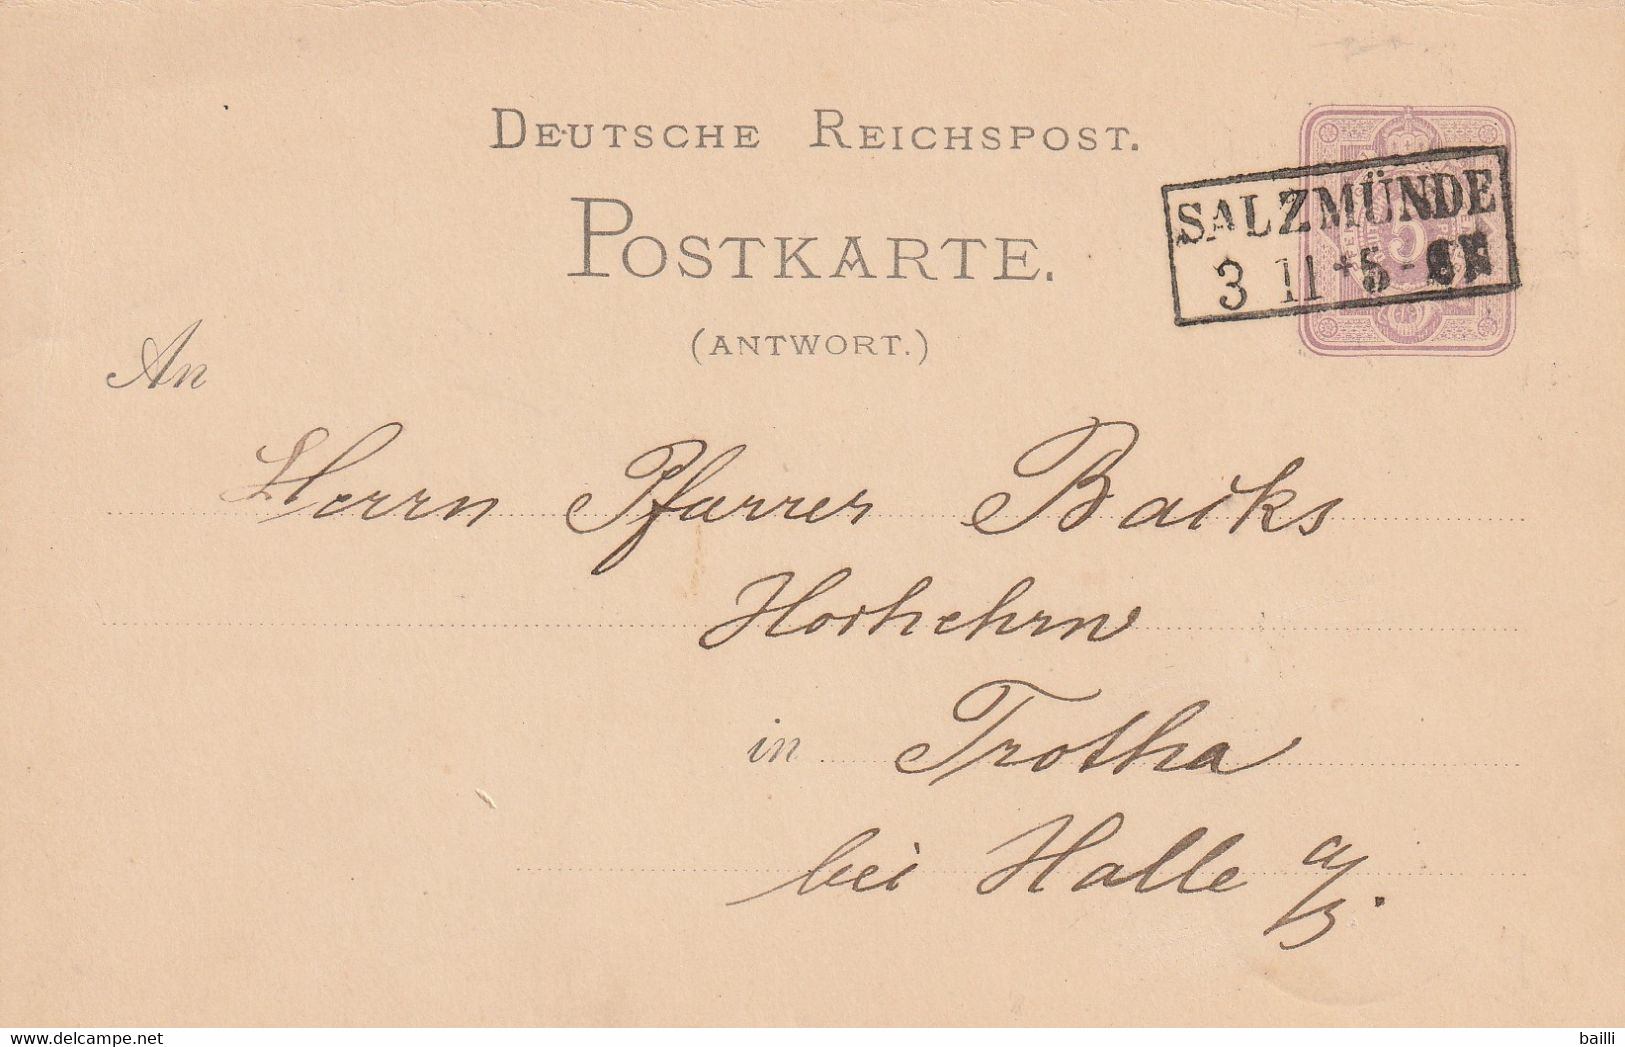 DEUTSCHE REICHSPOST.
POSTKARTE.
(ANTWORT.)
SALZMÜNDE
3 11 * 5 - 6 N
5
An
Herrn Pfarrer Baiks
in Trotha
bei Halle a/S.
www.delcampe.net
bailli